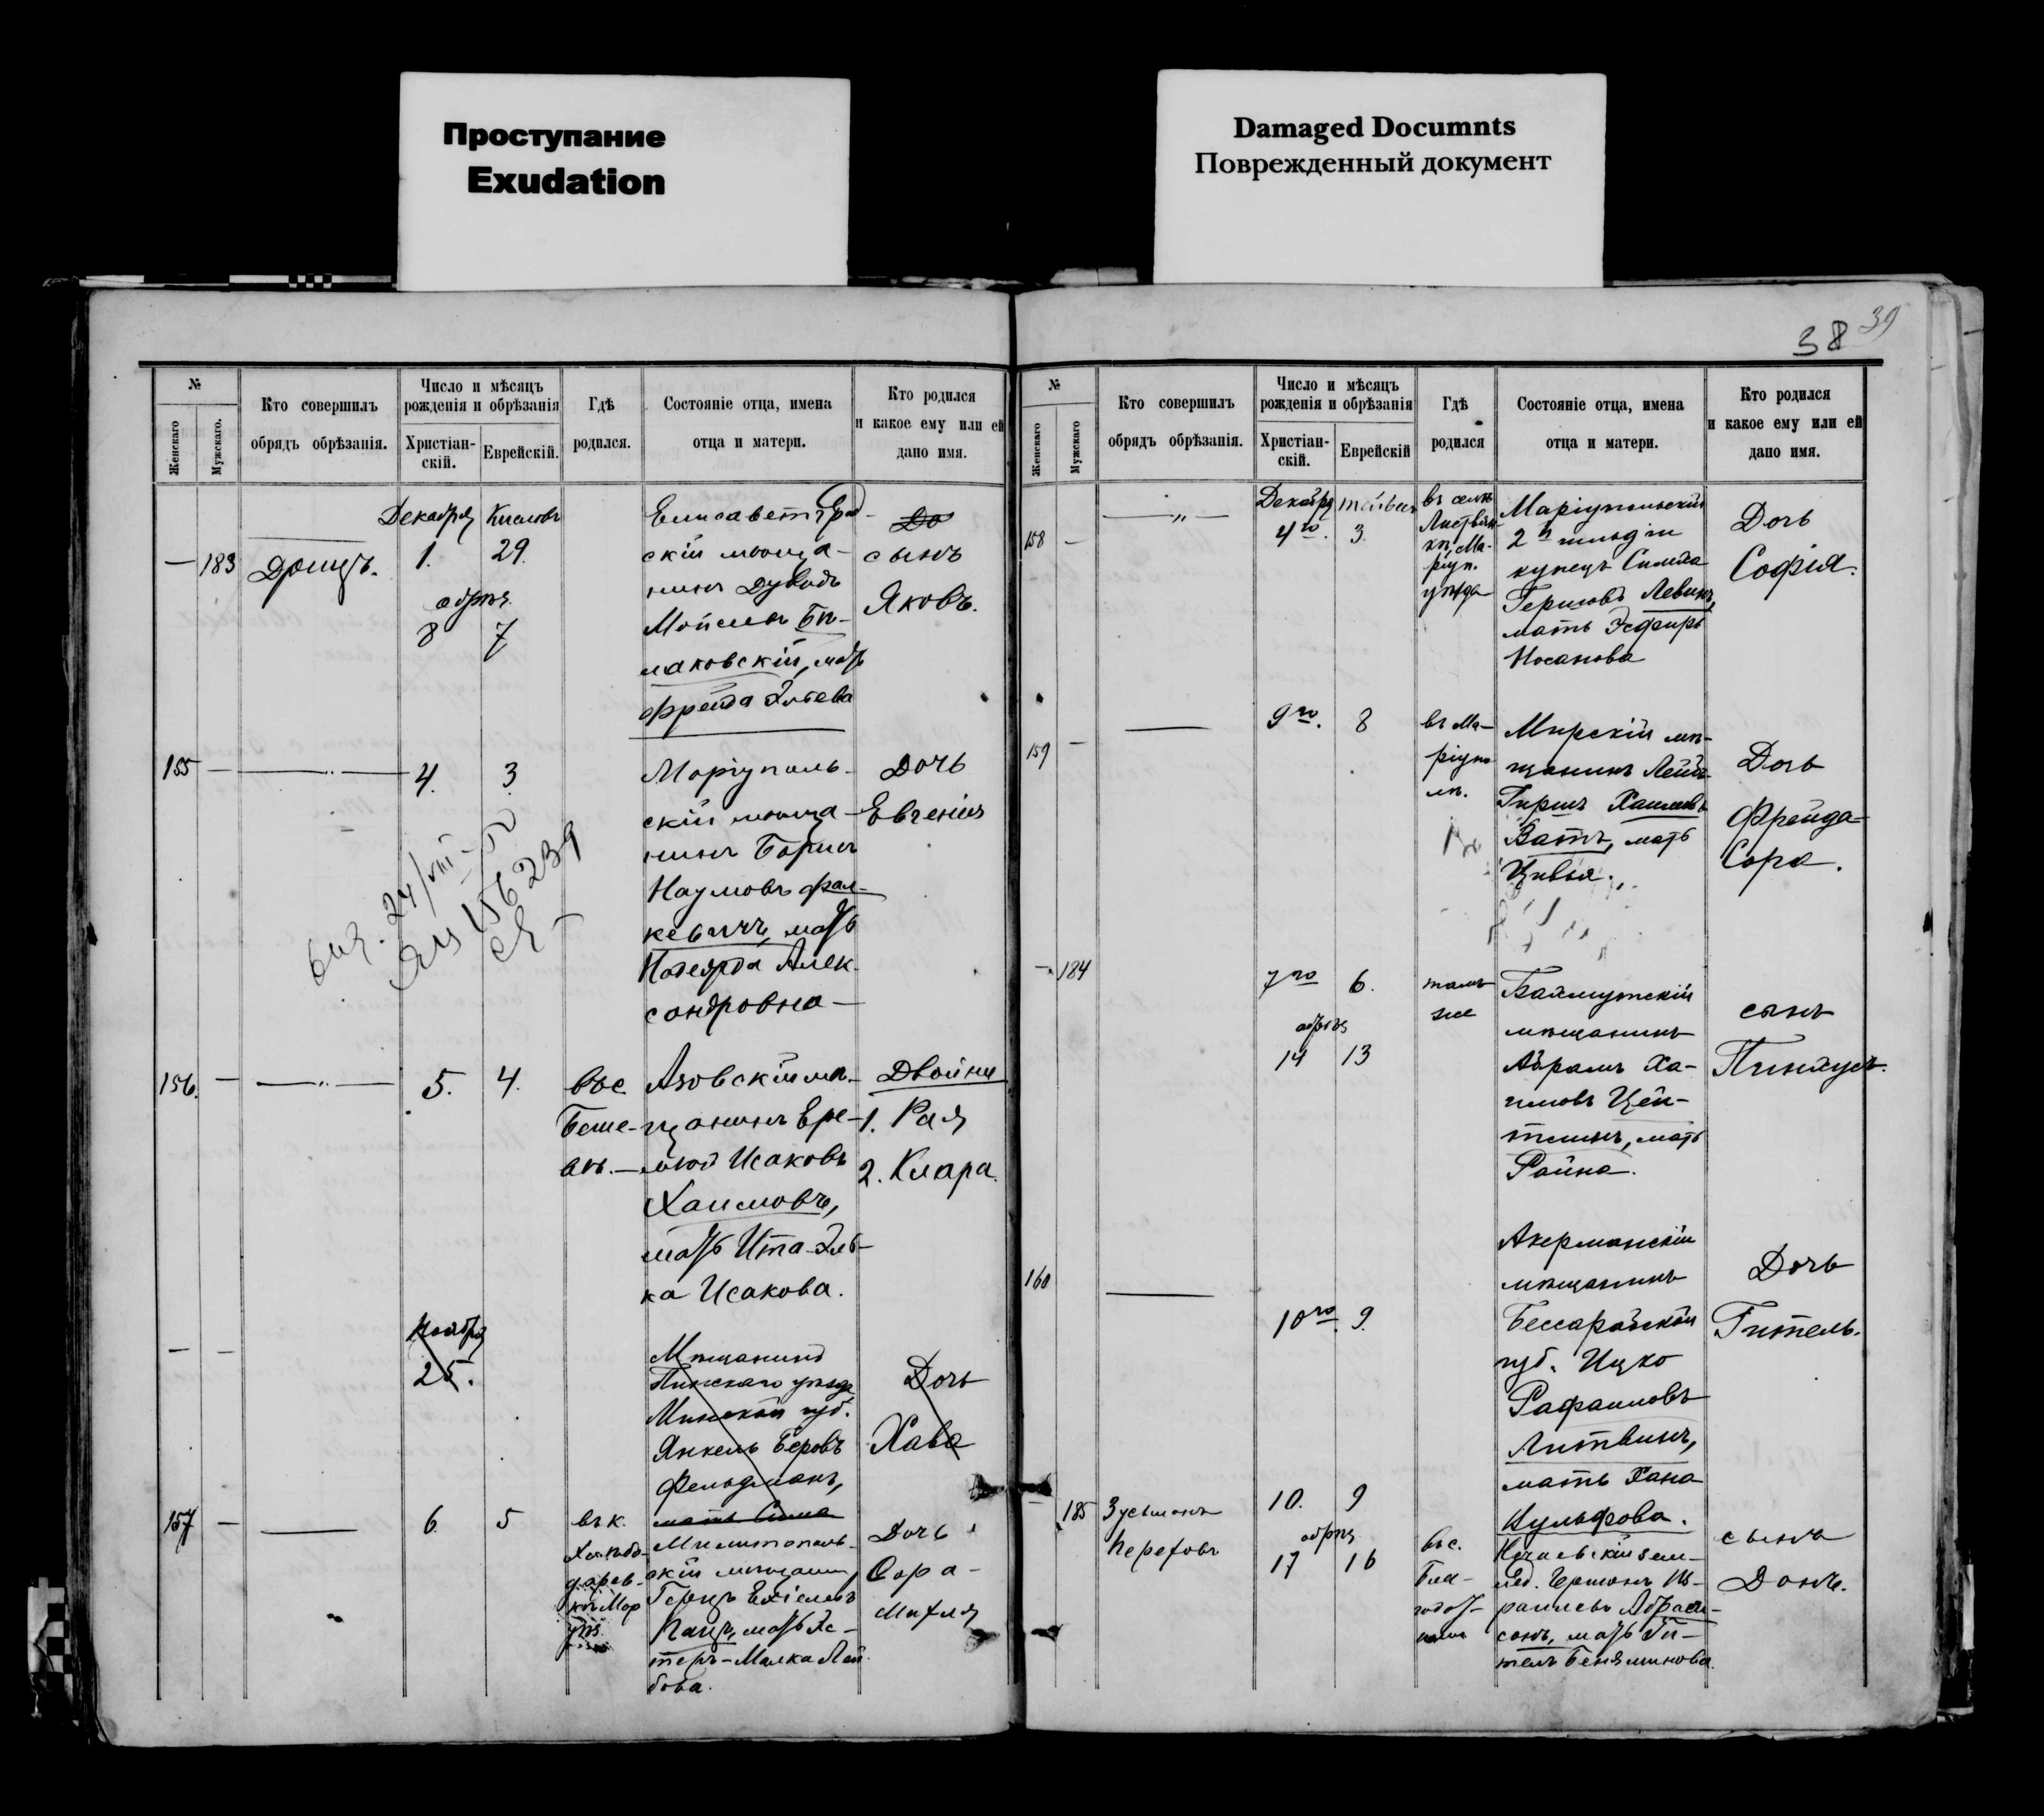 Проступание
Exudation
Damaged Documnts
Поврежденный документ
38 39
№
Женскаго
Мужскаго.
Кто совершилъ
обрядъ обрѣзанія.
Число и мѣсяцъ
рожденія и обрѣзанія
Христіан-
скій.
Еврейскій.
Гдѣ
родился.
Состояніе отца, имена
отца и матери.
Кто родился
и какое ему или ей
дано имя.
— 183
Декабря
1.
29.
8 7
Елисаветград-
скій мѣща-
нинъ Дувидъ
маковскій, мать
Фрейда Эльева
До
сынъ
Яковъ.
155 —
4. 3.
Маріуполь-
скій мѣща-
нинъ Борисъ
Наумовъ Фал-
кевичъ, мать
Надежда Алек-
сандровна —
Дочь
Евгенія
24/VIII
156239
156. —
5. 4.
въ с.
Беше-
вѣ. —
Азовскій мѣ-
щанинъ Ере-
мѣй Исаковъ
Хаимовъ,
мать Ита-Эль-
ка Исакова.
Двойни
1. Рая
2. Клара.
— —
Ноября
25.
Мѣщанинъ
Пинскаго уѣзда
Минской губ.
Янкель Беровъ
Фельдманъ,
мать Сима
Дочь
Хава
157 —
6. 5
въ к.
Мелитополь-
скій мѣщанин
Герцъ Ехіелевъ
Кацъ, мать Эс-
теръ-Малка Лей-
бова.
Дочь
Сора-
Михля
№
Женскаго
Мужскаго
Кто совершилъ
обрядъ обрѣзанія.
Число и мѣсяцъ
рожденія и обрѣзанія
Христіан-
скій.
Еврейскій
Гдѣ
родился
Состояніе отца, имена
отца и матери.
Кто родился
и какое ему или ей
дано имя.
158 —
Декабря
4го. 3.
Ма-
ріуп.
уѣзда
Маріупольскій
2й гильдіи
купецъ
Гершовъ Левинъ,
мать Эсфирь
Носанова
Дочь
Софія.
159 —
9го. 8
въ Ма-
ріупо-
лѣ.
Мирскій мѣ-
щанинъ Лейб-
Гиршъ Хаимовъ
Ватъ, мать
Цивья.
Дочь
Фрейда-
Сора.
— 184
7го 6.
14 13
тамъ
же
Бахмутскій
мѣщанинъ
Абрамъ Ха-
имовъ Цей-
тлинъ, мать
Райна.
сынъ
Пинхусъ.
160
10го. 9.
Акерманскій
мѣщанинъ
Бессарабской
губ. Ицко
Рафаиловъ
Литвинъ,
мать Хана
Вульфова.
Дочь
Гитель.
185
Зусьманъ
10. 9
17 16
въ с.
раилевъ Абрам-
сонъ, мать Ги-
тель Беняминова.
сынъ